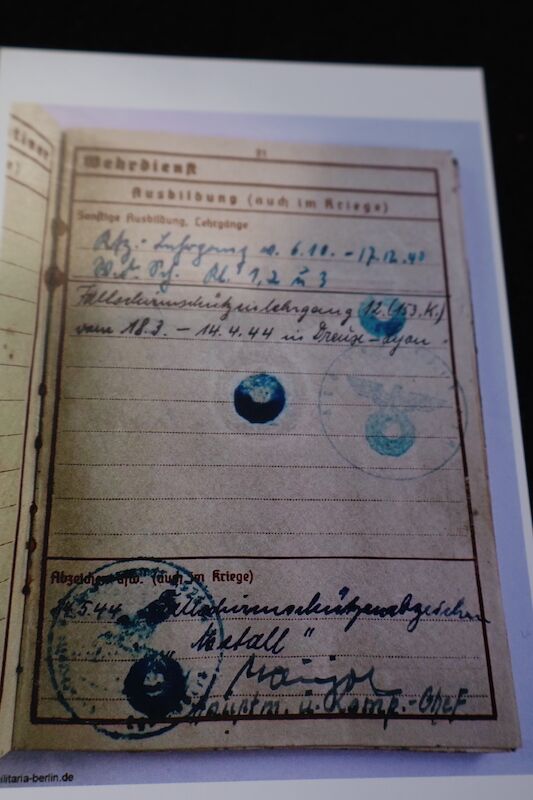 21
Wehrdienst
Ausbildung (auch im Kriege)
Sonstige Ausbildung, Lehrgänge
Lehrgang v. 6.10. – 17.12.40
1, 2 u 3
Fallschirmschützenlehrgang 12. (153. K.)
vom 18.3. – 14.4.44 in Dreux
Abzeichen usw. (auch im Kriege)
Fallschirmschützenabzeichen
„Metall"
Hauptm. u. Komp.-Chef
militaria-berlin.de